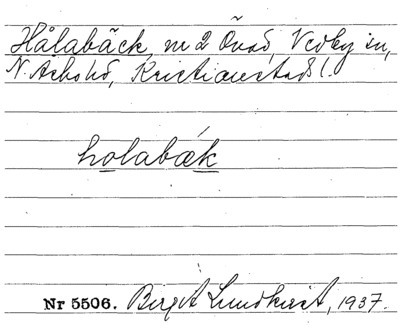 Hålabäck, nr 2 Övad, Vedby sn,
N. Åsbohd, Kristianstads l.
holabæk
Nr 5506. Birgit Lundkvist, 1937.